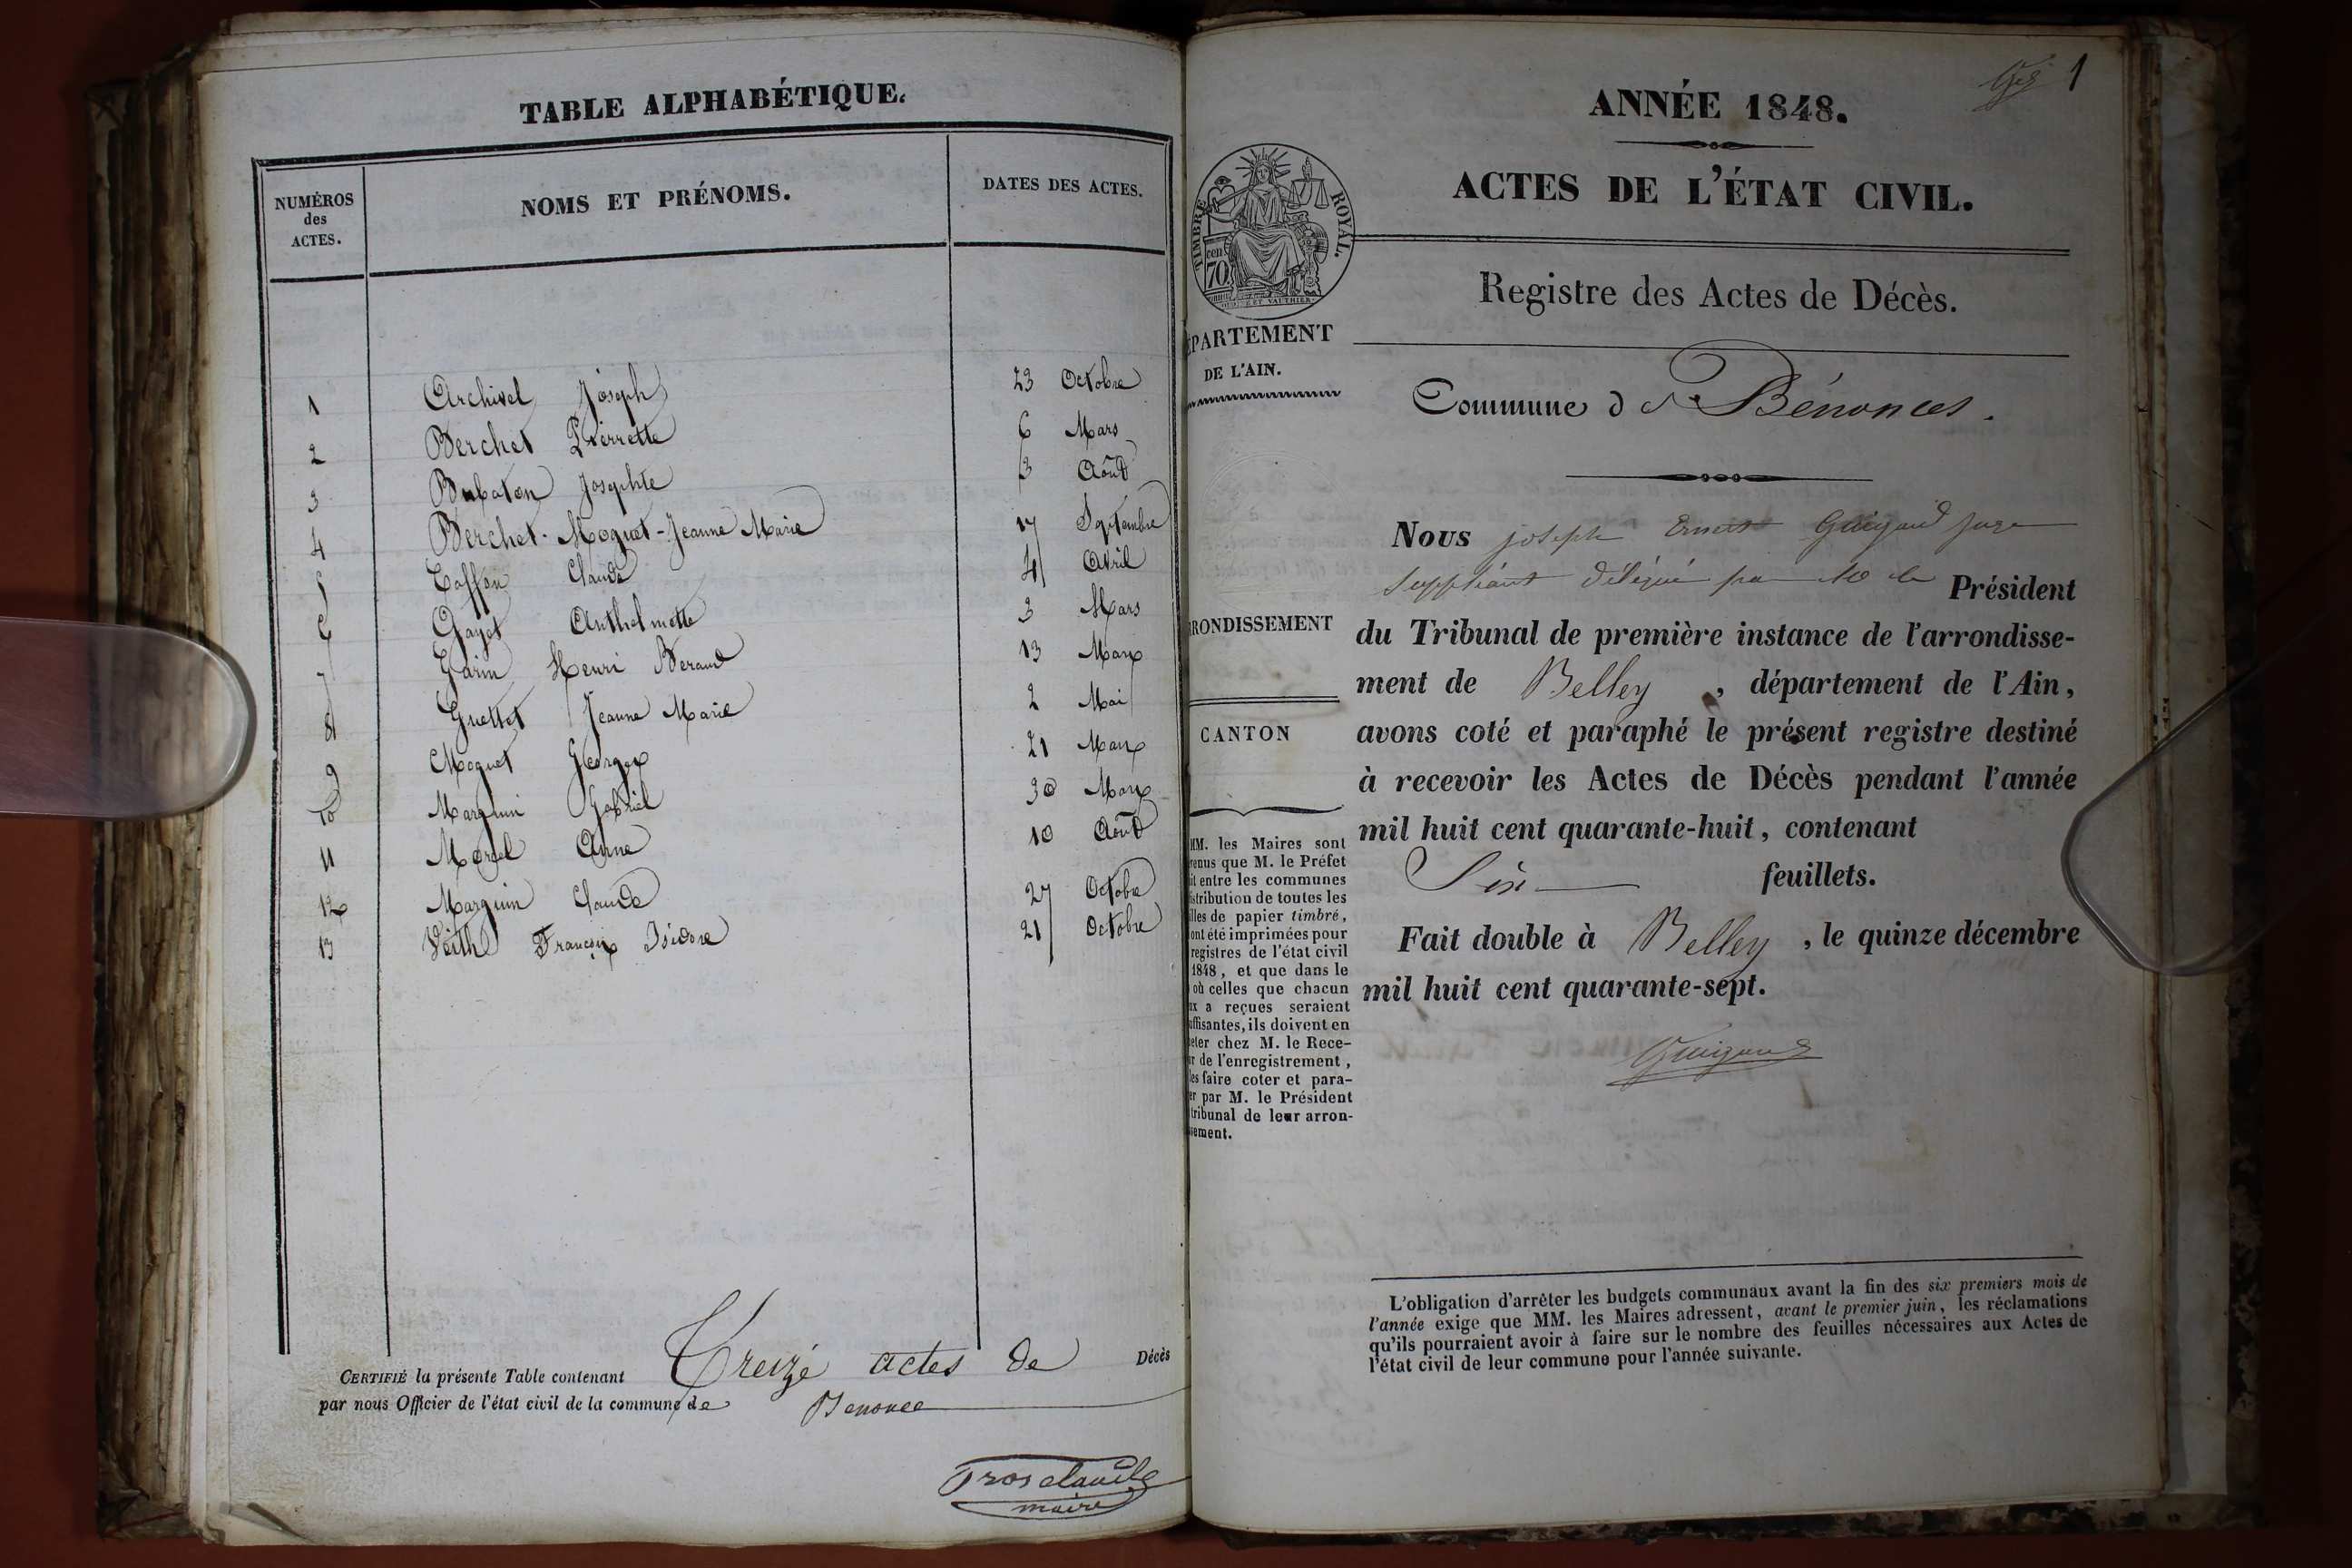 TABLE ALPHABÉTIQUE.
NUMÉROS
des
ACTES.
NOMS ET PRÉNOMS.
DATES DES ACTES.
1 Archirel Joseph 23 Octobre
2 Berchet Pierrette 6 Mars
3 Josephte 3 Août
4 Berchet-Moquet-Jeanne Marie 17 Septembre
5 Claude 4 Avril
6 Gayet Anthelmette 3 Mars
7 Garin Henri Beraud 13 Mars
8 Guettet Jeanne Marie 2 Mai
9 Moquet Georges 21 Mars
10 Marquin Gabriel 30 Mars
11 Morel Anne 10 Août
12 Marquin Claude 27 Octobre
13 Veith François Isidore 21 Octobre
CERTIFIÉ la présente Table contenant Treize actes de Décès
par nous Officier de l'état civil de la commune de Benonce
Prosclaude
maire
1
ANNÉE 1848.
ACTES DE L'ÉTAT CIVIL.
TIMBRE ROYAL.
cen
70
ET VAUTHIER
Registre des Actes de Décès.
ÉPARTEMENT
DE L'AIN.
Commune de Bénonces.
Nous joseph Ernest Guigard juge
suppléant délégué par Mr le Président
RONDISSEMENT
du Tribunal de première instance de l'arrondisse-
ment de Belley, département de l'Ain,
CANTON
avons coté et paraphé le présent registre destiné
à recevoir les Actes de Décès pendant l'année
mil huit cent quarante-huit, contenant
Six feuillets.
Fait double à Belley, le quinze décembre
mil huit cent quarante-sept.
Guigard
MM. les Maires sont
venus que M. le Préfet
it entre les communes
istribution de toutes les
illes de papier timbré,
ont été imprimées pour
registres de l'état civil
1848, et que dans le
où celles que chacun
ux a reçues seraient
uffisantes, ils doivent en
eter chez M. le Rece-
r de l'enregistrement,
les faire coter et para-
er par M. le Président
tribunal de leur arron-
sement.
L'obligation d'arrêter les budgets communaux avant la fin des six premiers mois de
l'année exige que MM. les Maires adressent, avant le premier juin, les réclamations
qu'ils pourraient avoir à faire sur le nombre des feuilles nécessaires aux Actes de
l'état civil de leur commune pour l'année suivante.